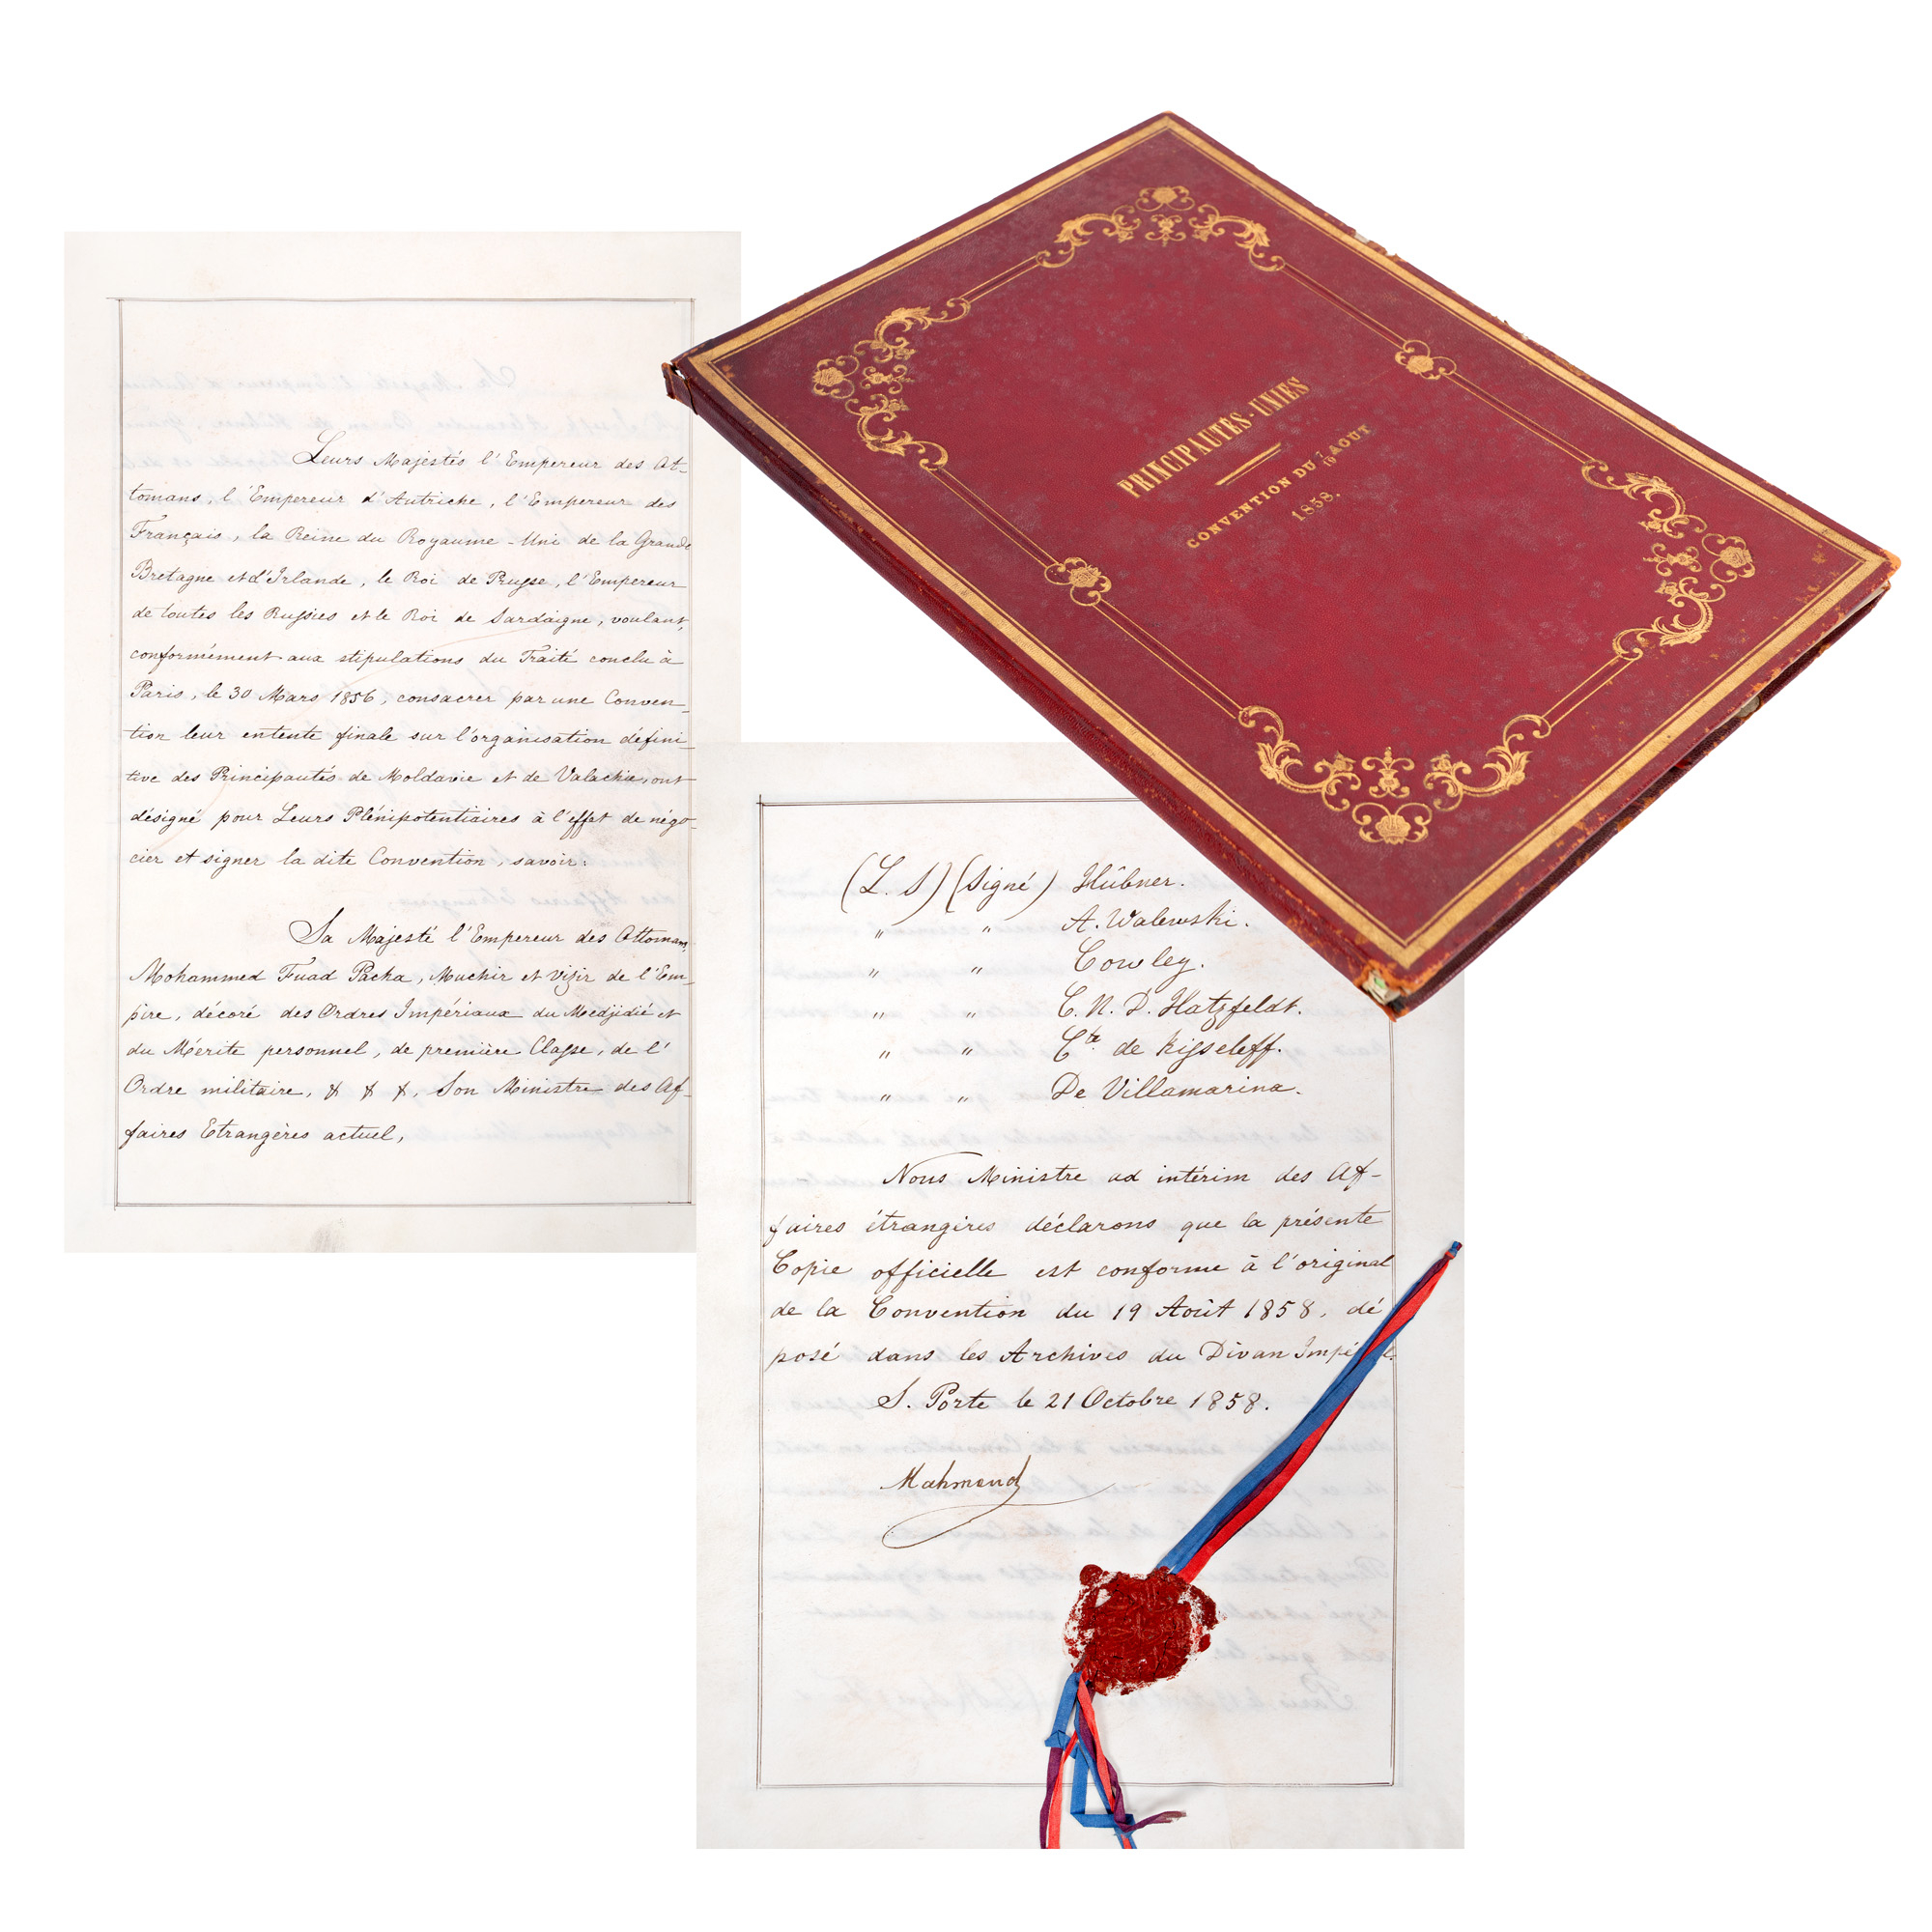 Leurs Majestés l'Empereur des Ot-
tomans, l'Empereur d'Autriche, l'Empereur des
Français, la Reine du Royaume-Uni de la Grande
Bretagne et d'Irlande, le Roi de Prusse, l'Empereur
de toutes les Russies et le Roi de Sardaigne, voulant,
conformément aux stipulations du Traité conclu à
Paris, le 30 Mars 1856, consacrer par une Conven-
tion leur entente finale sur l'organisation défini-
tive des Principautés de Moldavie et de Valachie, ont
désigné pour Leurs Plénipotentiaires à l'effet de négo-
cier et signer la dite Convention, savoir:
Sa Majesté l'Empereur des Ottomans,
Mohammed Fuad Pacha, Muchir et Vizir de l'Em-
pire, décoré des Ordres Impériaux du Medjidié et
du Mérite personnel, de première Classe, de l'
Ordre militaire, & & &, Son Ministre des Af-
faires Etrangères actuel,
PRINCIPAUTÉS-UNIES
CONVENTION DU 7/19 AOUT
1858.
(L. S) (Signé) Hübner.
" " A. Walewski.
" " Cowley.
" " C. M. D. Hatzfeldt.
" " Cte de Kisseleff.
" " De Villamarina.
Nous Ministre ad intérim des Af-
faires étrangères déclarons que la présente
Copie officielle est conforme à l'original
de la Convention du 19 Août 1858, dé
posé dans les Archives du Divan
S. Porte le 21 Octobre 1858.
Mahmoud